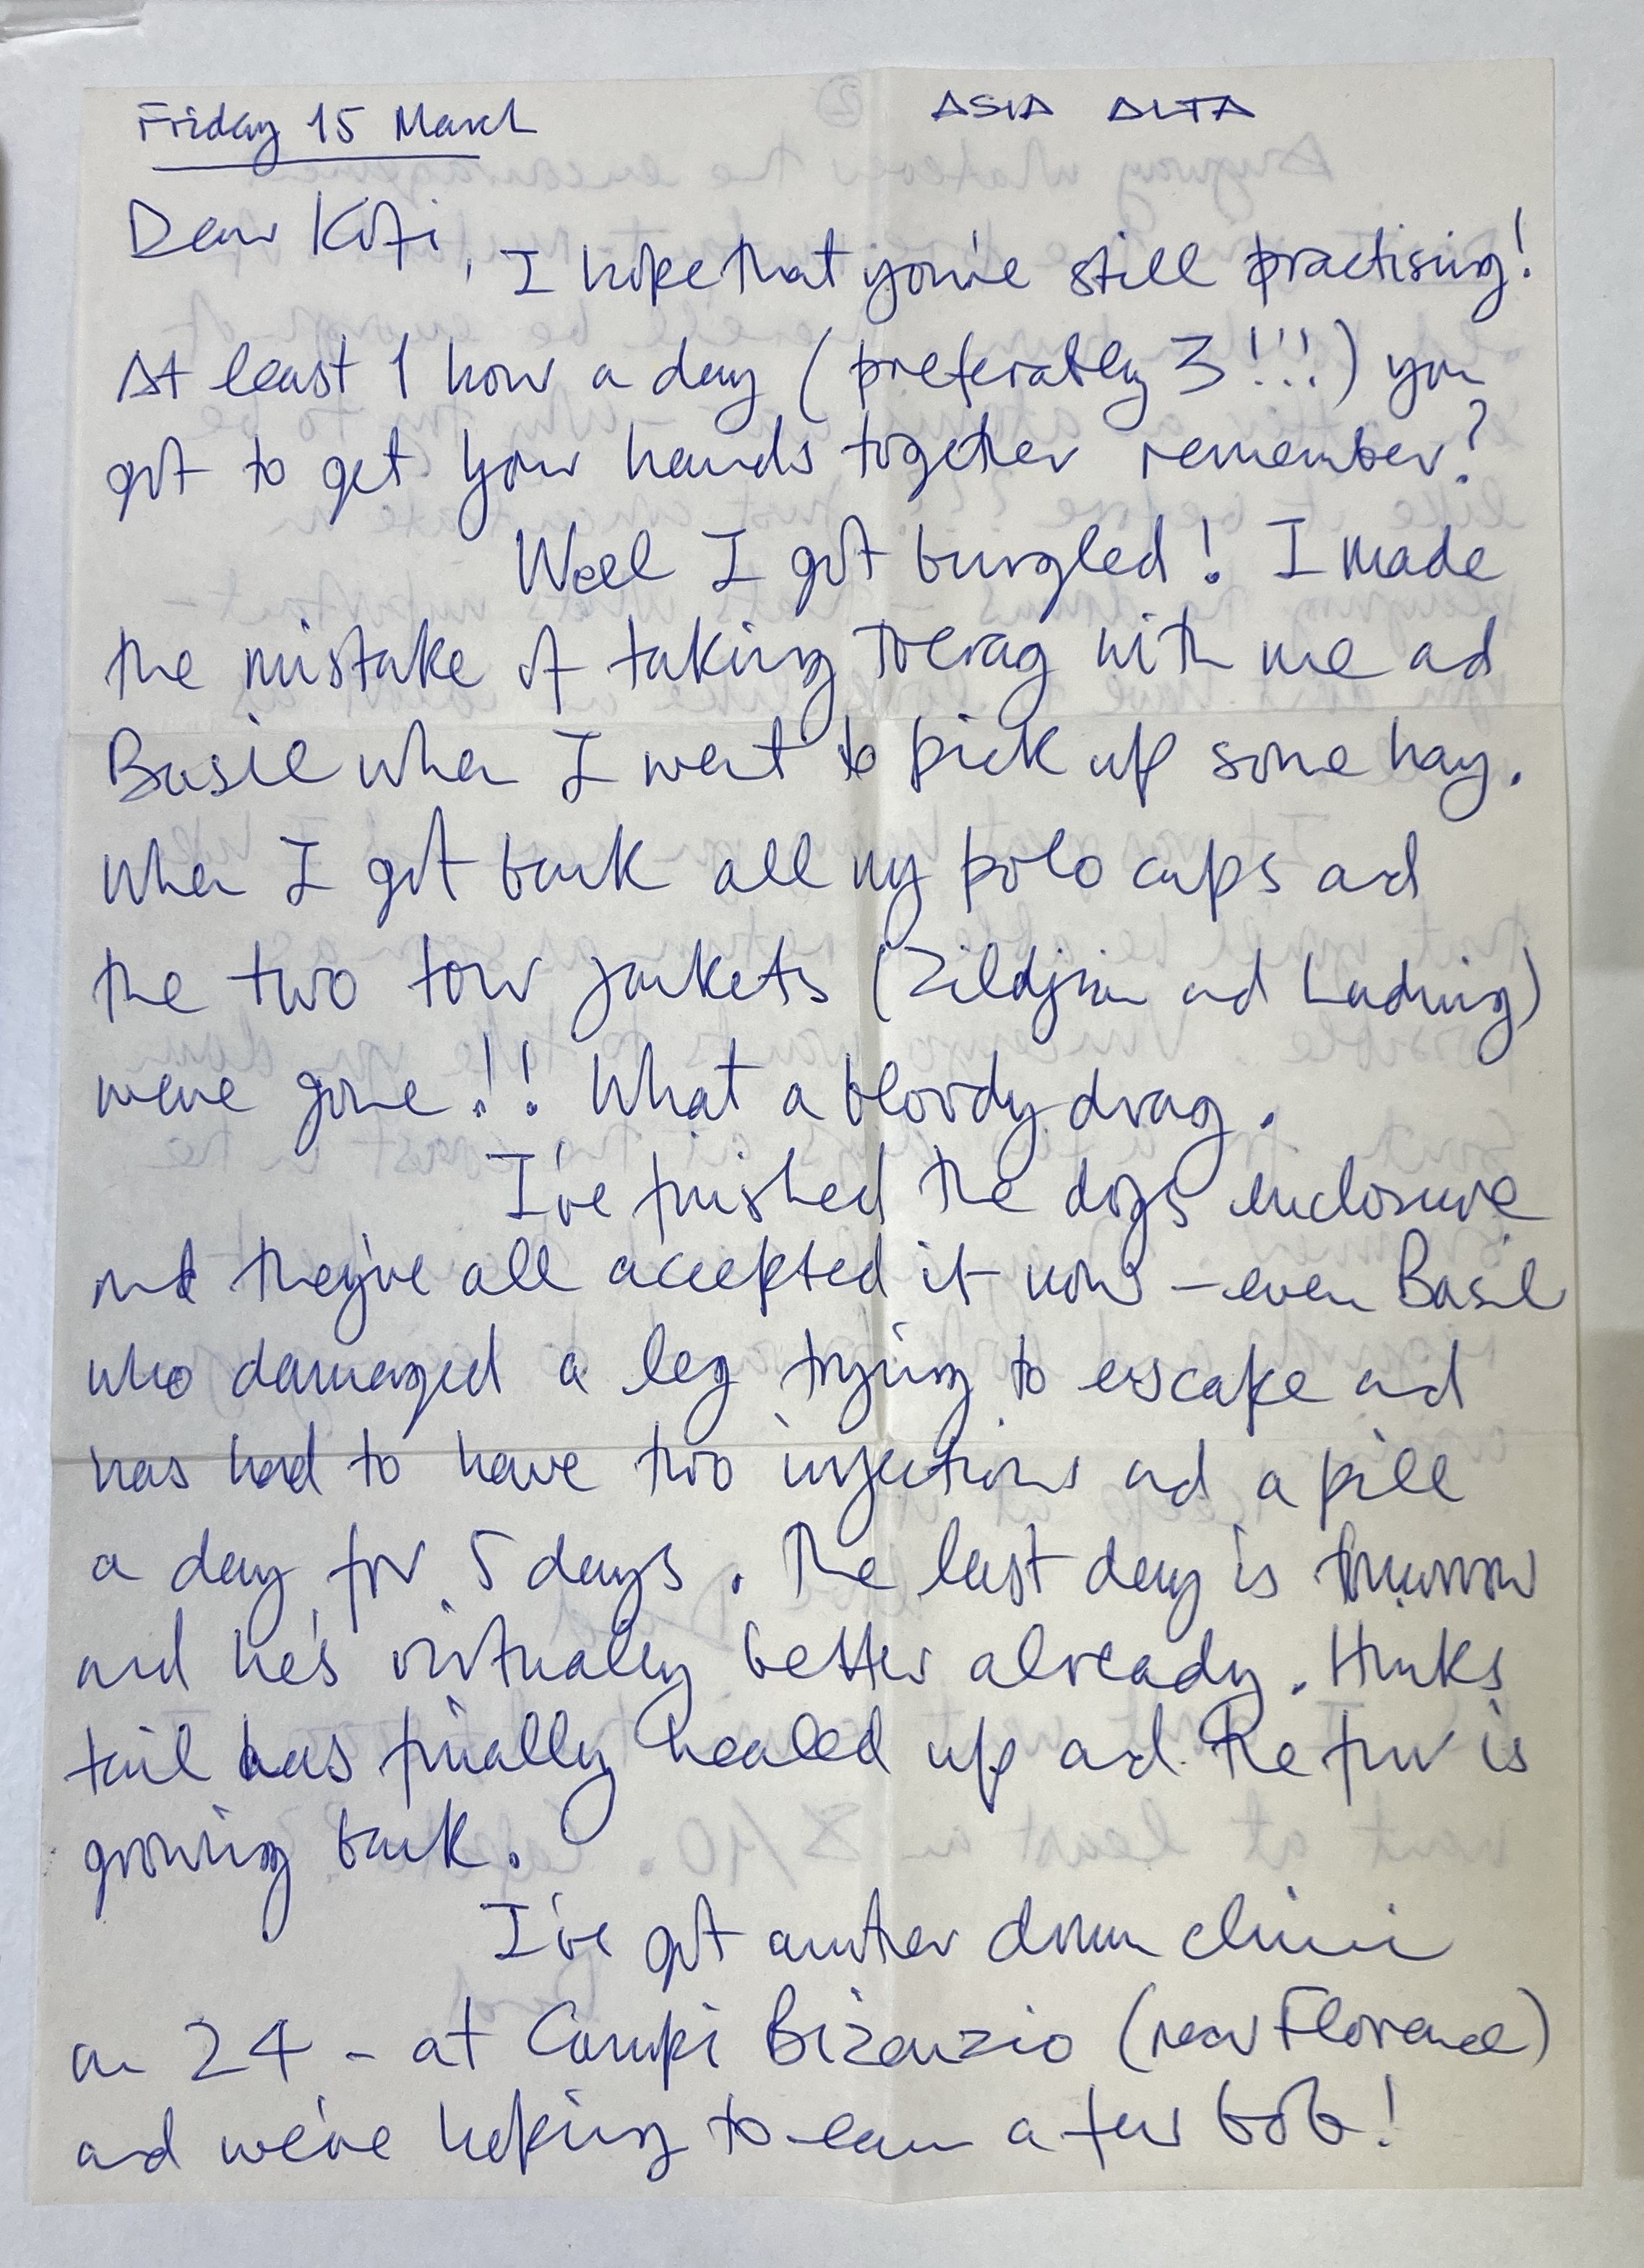 Friday 15 March
ASIA ALTA
Dear Kofi,
I hope that you're still practising!
At least 1 hour a day (preferably 3!!!) you
got to get your hands together remember?
Well I got burgled! I made
the mistake of taking Toerag with me and
Basil when I went to pick up some hay.
When I got back all my polo cups and
the two tour jackets (Zildjian and Ludwig)
were gone!! What a bloody drag.
I've finished the dogs enclosure
and they've all accepted it now – even Basil
who damaged a leg trying to escape and
has had to have two injections and a pill
a day for 5 days. The last day is tomorrow
and he's virtually better already. Hunks
tail has finally healed up and the fur is
growing back.
I've got another drum clinic
on 24 – at Campi Bizenzio (near Florence)
and we're hoping to earn a few bob!